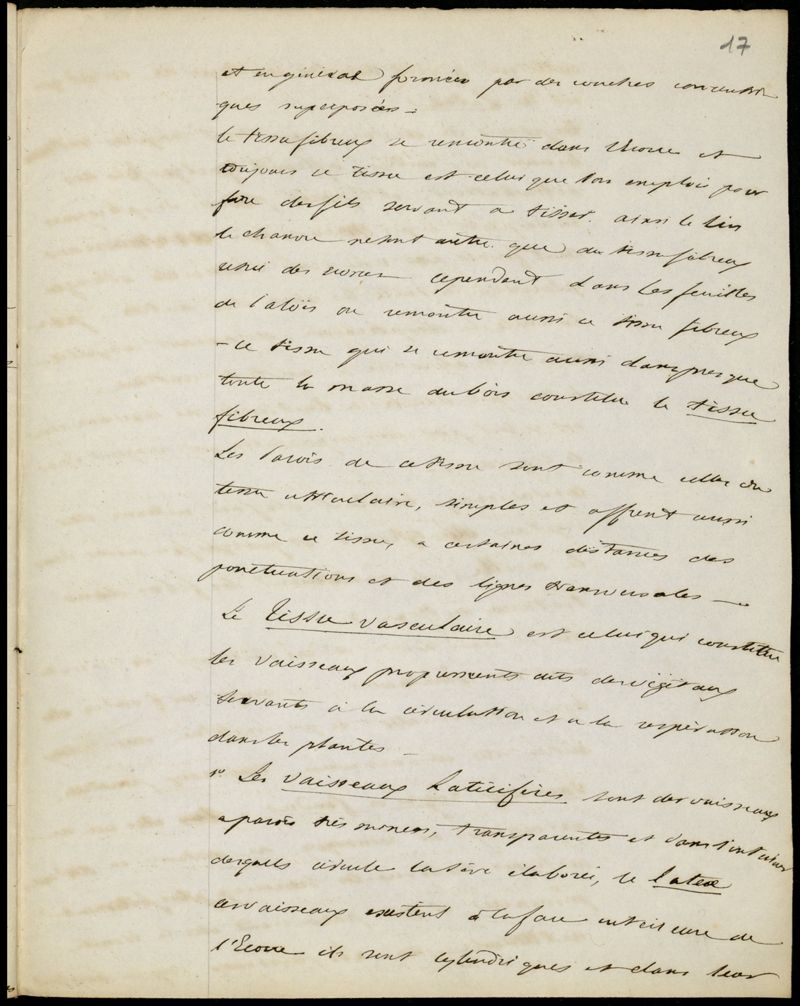 17
et en général formées par des couches concentri
ques superposées.
le tissu fibreux se rencontre dans l'écorce et
toujours ce tissu est celui que l'on emploie pour
faire des fils servant a tisser. ainsi le lin
le chanvre ne sont autre que du tissu fibreux
des écorces cependant dans les feuilles
de l'aloïs on rencontre aussi ce tissu fibreux
- ce tissu qui se rencontre aussi dans presque
toute la masse du bois constitue le tissu
fibreux.
Les parois de ce tissu sont comme celles du
tissu utriculaire, simples et offrent aussi
comme ce tissu, a certaines distances des
ponctuations et des lignes transversales —
Le tissu vasculaire est celui qui constitue
les vaisseaux proprements dits des végétaux
servants à la circulation et a la respiration
dans les plantes —
1º Les vaisseaux Laticifères sont des vaisseaux
a parois très minces, transparentes et dans l'intérieur
desquels circule la sève élaborée, le latex
ces vaisseaux existent à la face intérieure de
l'Ecorce ils sont cylindriques et dans leur